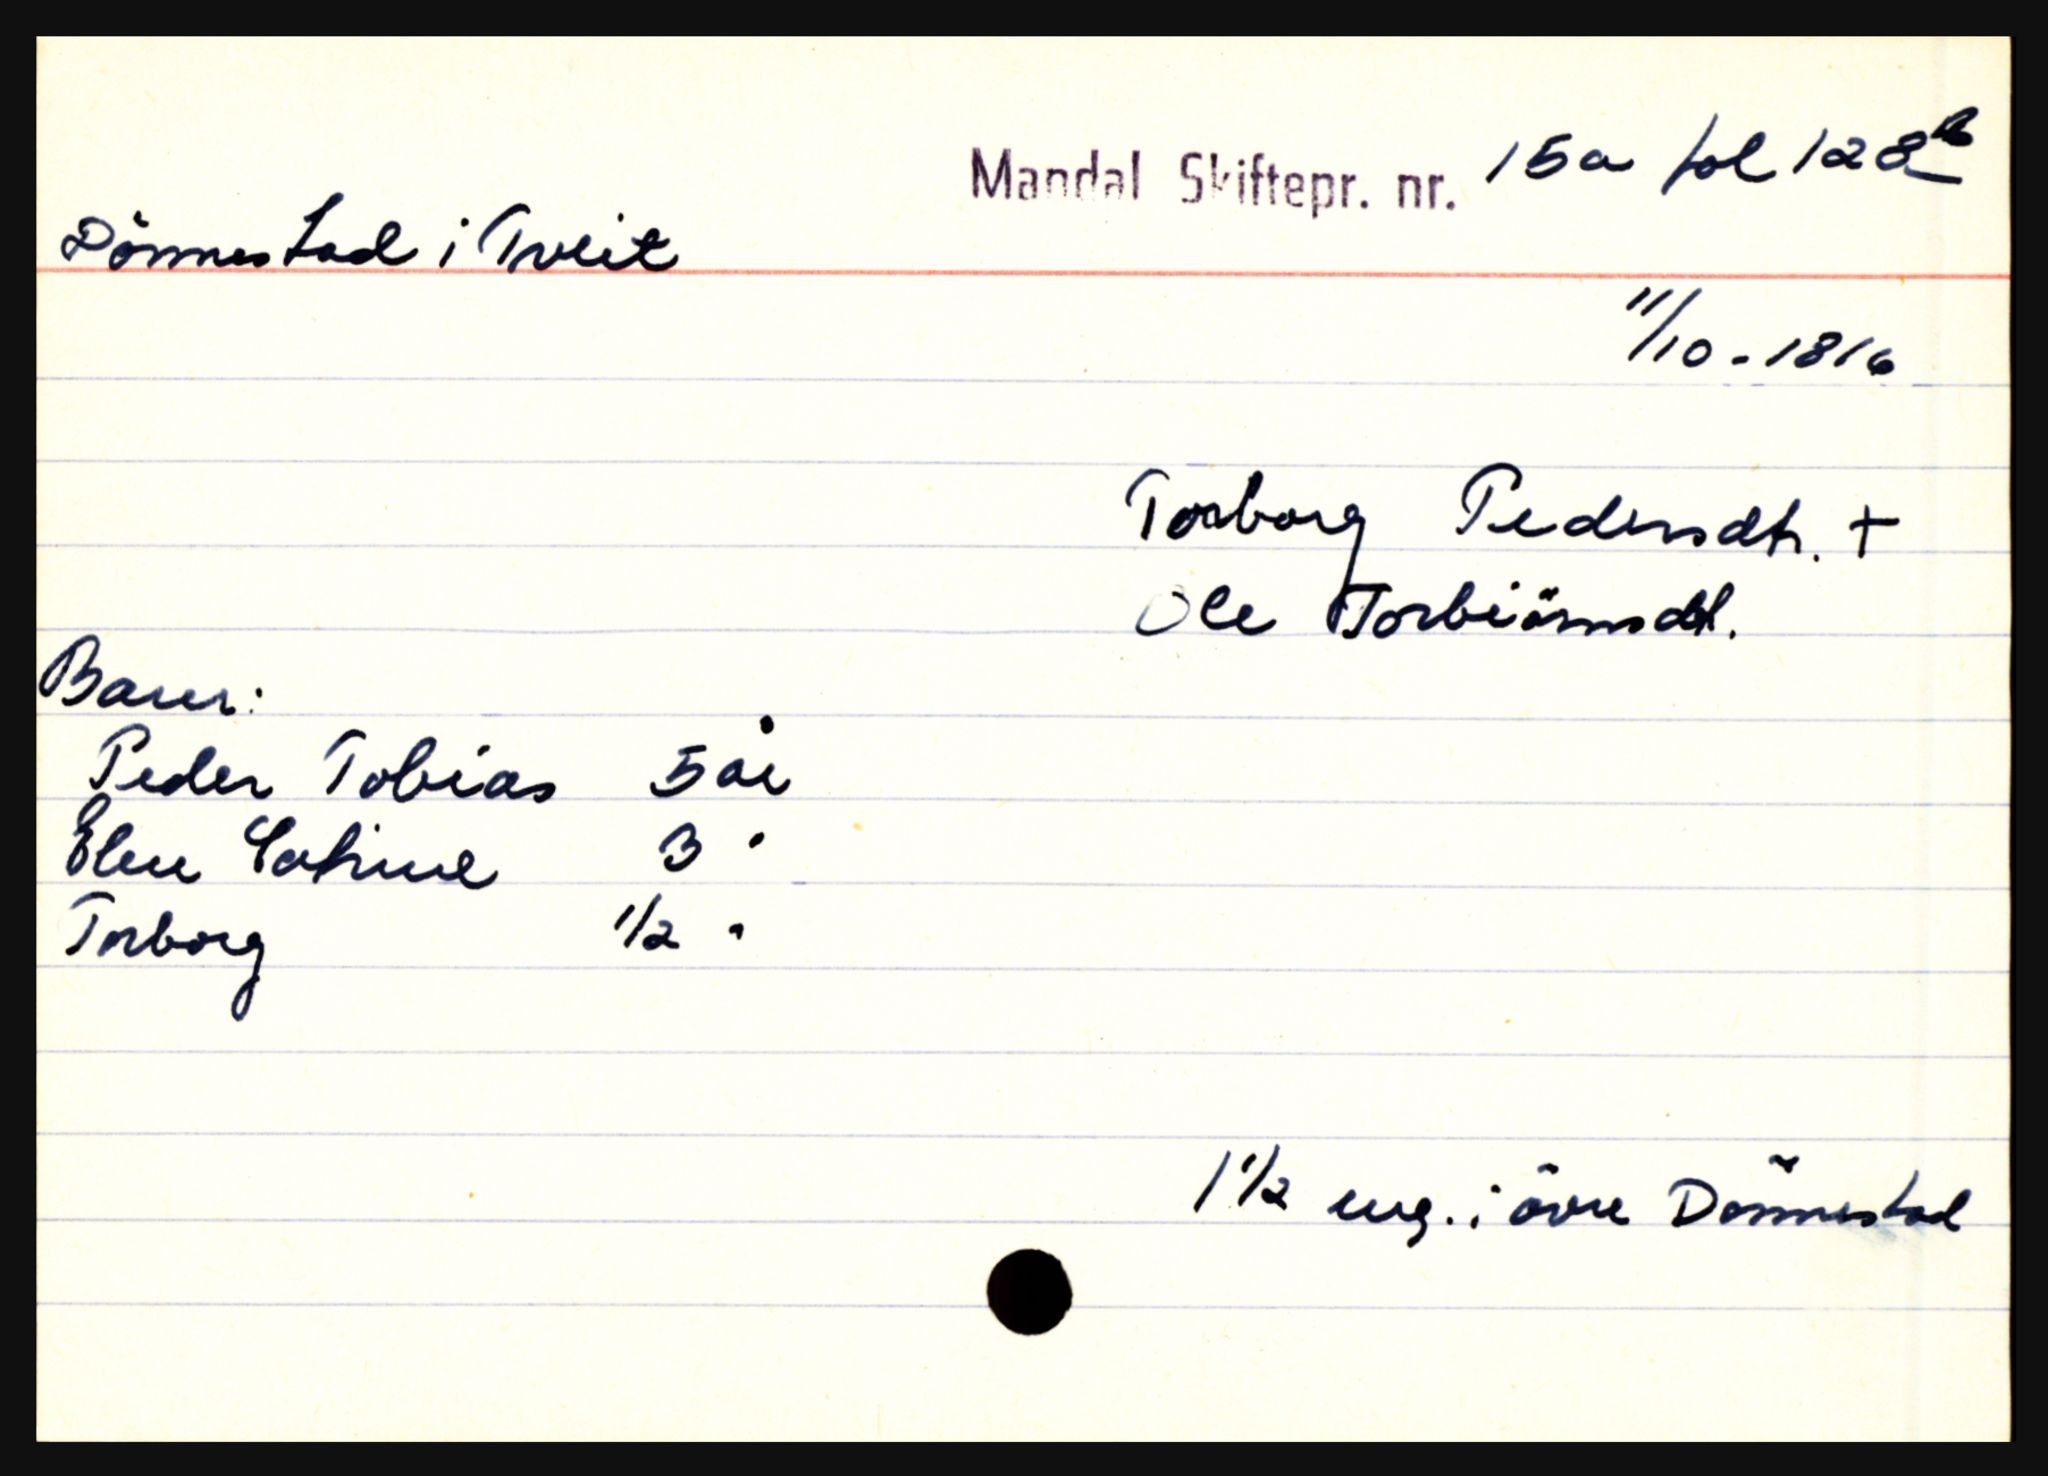 Mandal Skiftepr. nr. 15a fol 128b
Dönnestad i Tveit
11/10 - 1816
Torborg Pedersdtr. +
Ole Torbiörns
Barn:
Peder Tobias 5 år
Elen 3 "
Torborg 1/2 "
1 1/2 eng. i övre Dönnestad